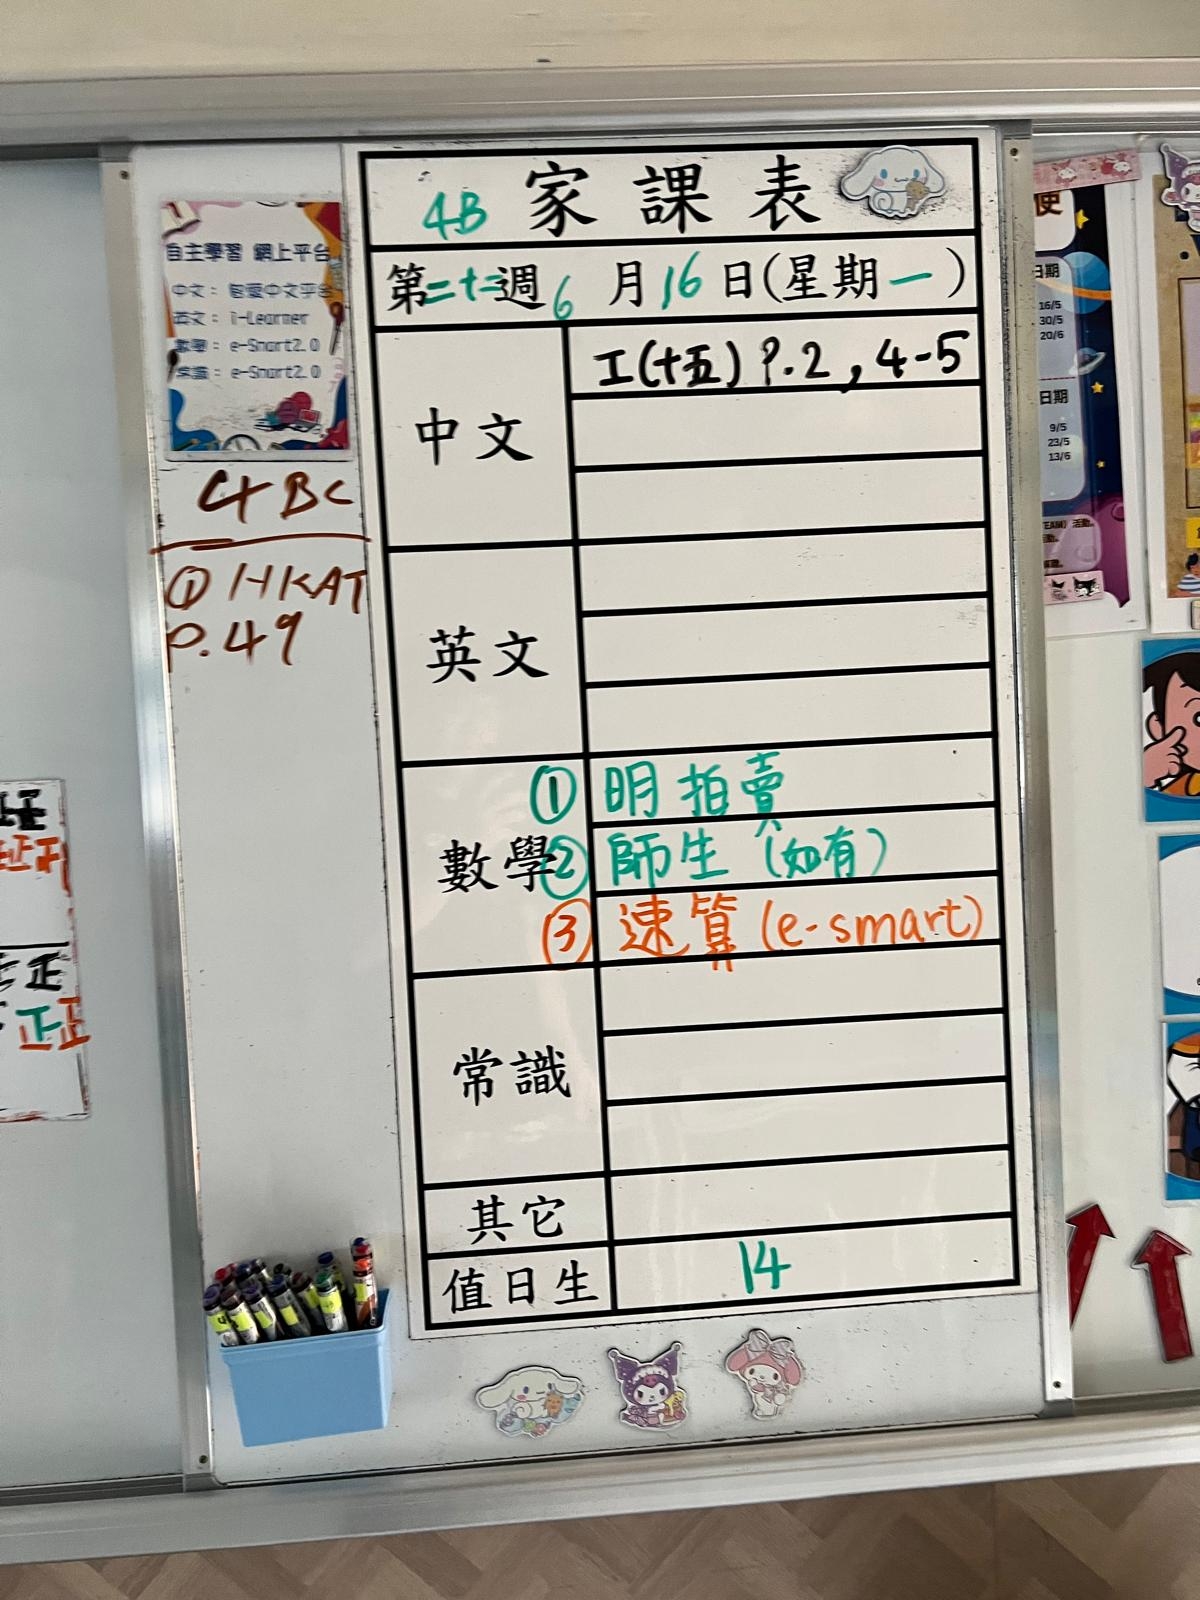 4B 家課表
第二十二週 6月16日(星期一)
中文
工(十五) P.2, 4-5
英文
數學
① 明拍賣
② 師生 (如有)
③ 速算 (e-smart)
常識
其它
值日生
14
自主學習 網上平台
中文：智愛中文平台
英文：i-Learner
數學：e-Smart2.0
常識：e-Smart2.0
4BC
① HKAT
P.49
使
日期
16/5
30/5
20/6
日期
9/5
23/5
13/6
正
正
正